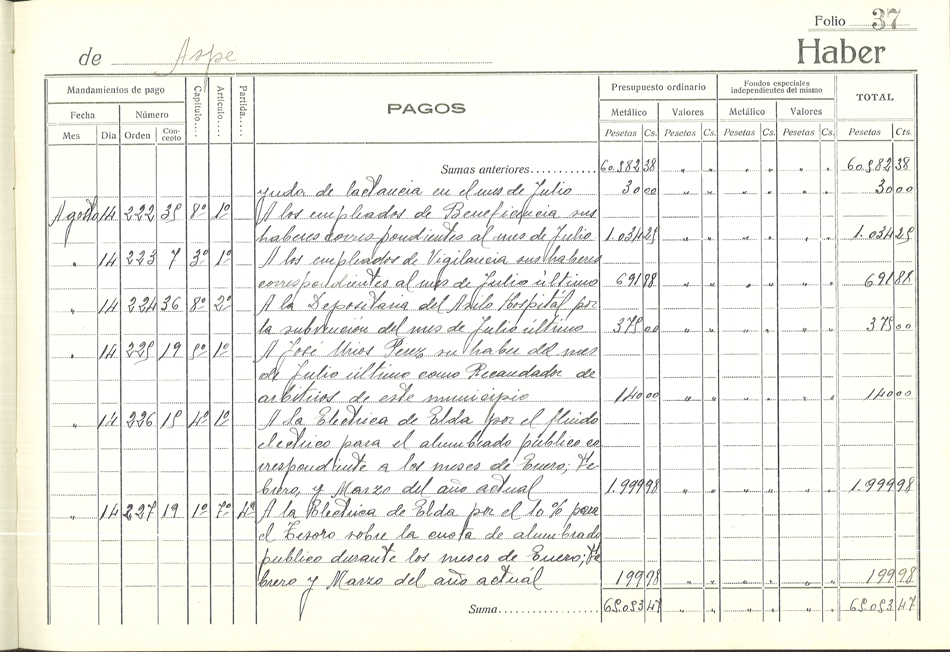 Folio 37
de Aspe Haber
Mandamientos de pago Capítulo.... Artículo.... Partida..... PAGOS Presupuesto ordinario Fondos especiales independientes del mismo TOTAL
Fecha Número Metálico Valores Metálico Valores
Mes Día Orden Concepto Pesetas Cs. Pesetas Cs. Pesetas Cs. Pesetas Cs. Pesetas Cts
Sumas anteriores............ 60.582 38 " " " " " " 60.582 38
yuda de lactancia en el mes de Julio 30 00 " " " " " " 30 00
Agosto 14 222 35 8º 1º A los empleados de Beneficencia sus
haberes correspondientes al mes de Julio 1.034 25 " " " " " " 1.034 25
" 14 223 7 3º 1º A los empleados de Vigilancia sus haberes
correspondientes al mes de Julio último 691 88 " " " " " " 691 88
" 14 224 36 8º 2º A la Depositaria del Asilo Hospital por
la subvención del mes de Julio último 375 00 " " " " " " 375 00
" 14 225 19 5º 1º A José Urios Pérez su haber del mes
de Julio último como Recaudador de
arbitrios de este municipio 140 00 " " " " " " 140 00
" 14 226 15 4º 1º A La Electrica de Elda por el fluido
electrico para el alumbrado público co
rrespondiente a los meses de Enero; Fe
brero, y Marzo del año actual 1.999 98 " " " " " " 1.999 98
" 14 227 19 1º 7º 4º A la Electrica de Elda por el 10 % para
el Tesoro sobre la cuota de alumbrado
publico durante los meses de Enero; Fe
brero y Marzo del año actuál 199 98 " " " " " " 199 98
Suma.................. 65.053 47 " " " " " " 65.053 47